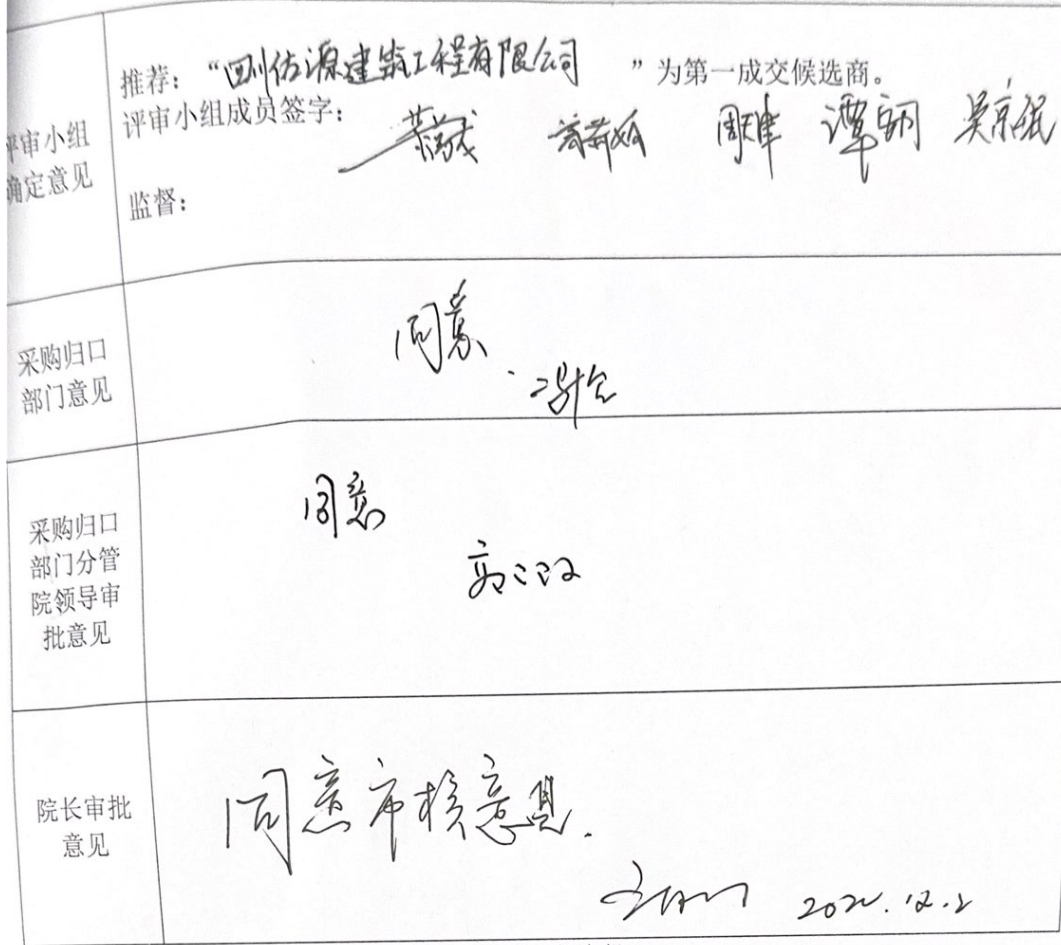 评审小组
确定意见
推荐：“四川佐源建筑工程有限公司”为第一成交候选商。
评审小组成员签字：
周建 谭钢 吴京珉
监督：
采购归口
部门意见
同意.
采购归口
部门分管
院领导审
批意见
同意
院长审批
意见
同意审核意见.